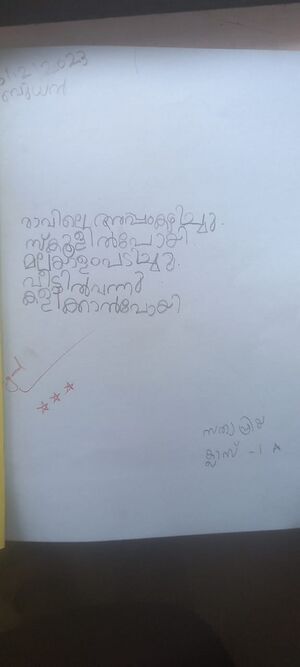 1/2/2023
ബുധൻ
രാവിലെ അപ്പംകഴിച്ചു.
സ്കൂളിൽപോയി
മലയാളംപടിച്ചു.
വീട്ടിൽവന്നു
കളിക്കാൻപോയി
സത്യപ്രിയ
ക്ലാസ് - 1 A